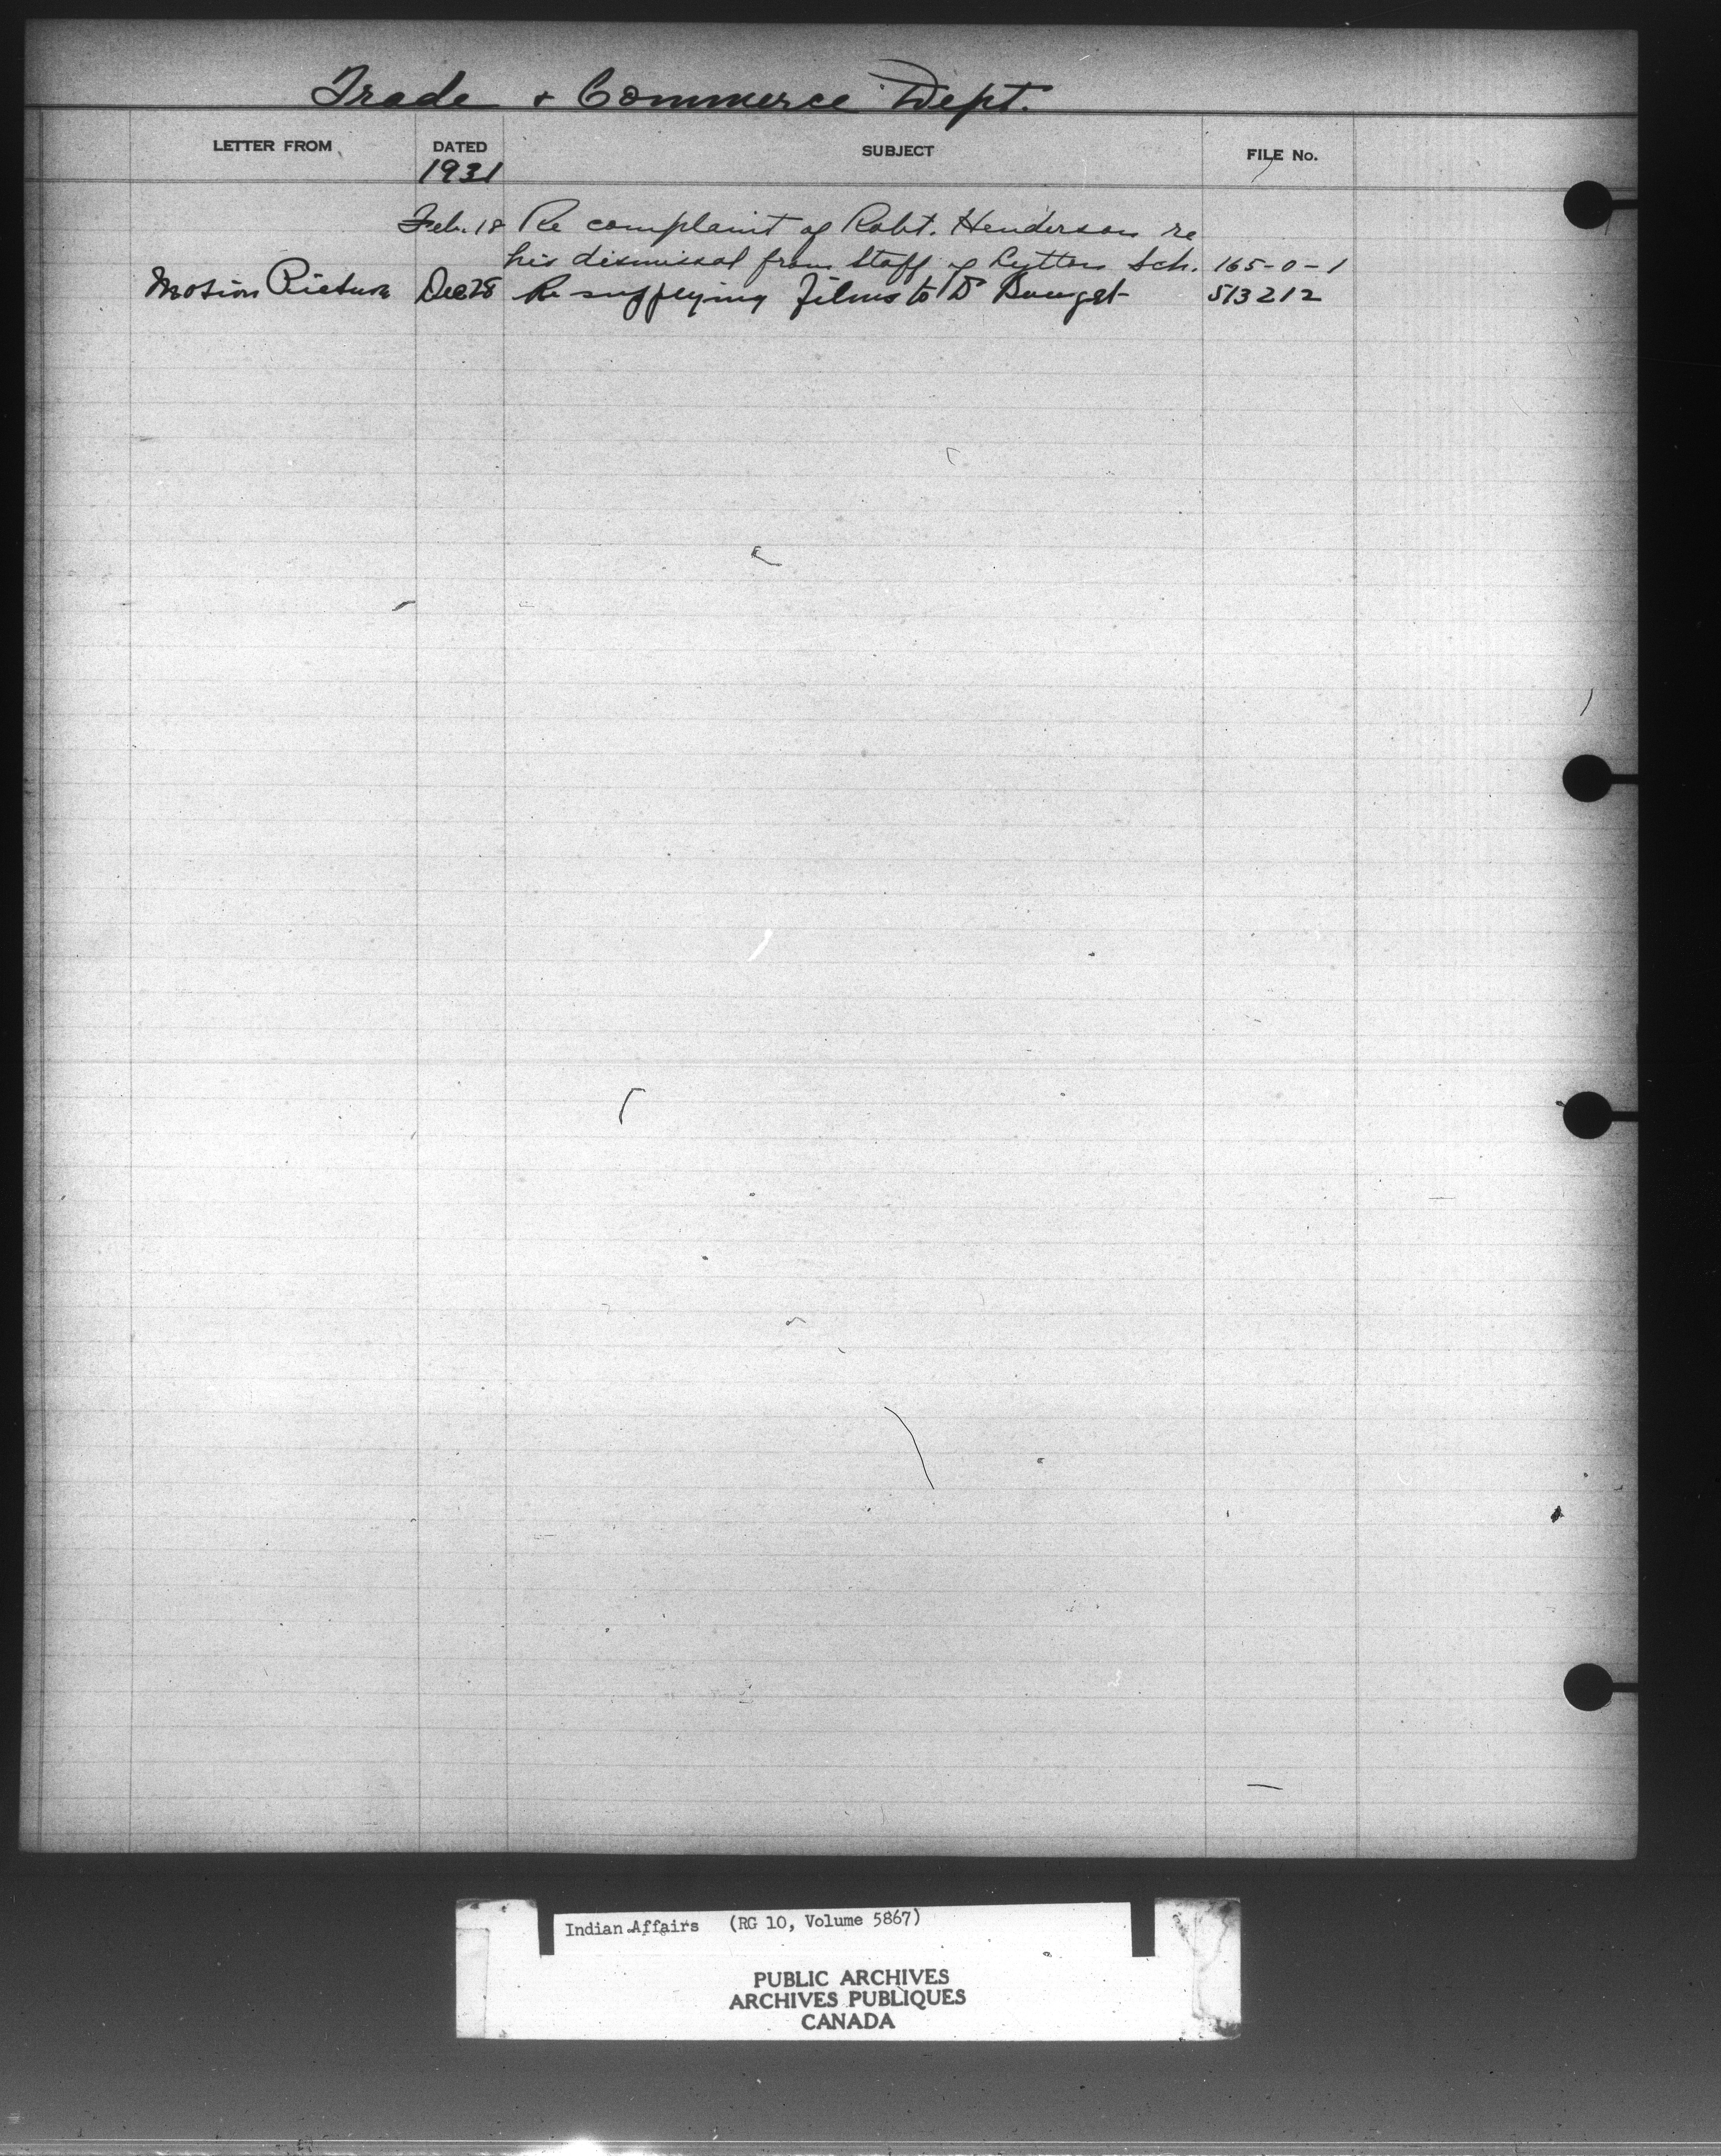 Trade & Commerce Dept.
LETTER FROM DATED SUBJECT FILE No.
1931
Feb. 18 Re complaint of Robt. Henderson re
his dismissal from Staff of Lytton Sch. 165-0-1
Motion Picture Dec 28 Re supplying films to Dr
513212
Indian Affairs (RG 10, Volume 5867)
PUBLIC ARCHIVES
ARCHIVES PUBLIQUES
CANADA